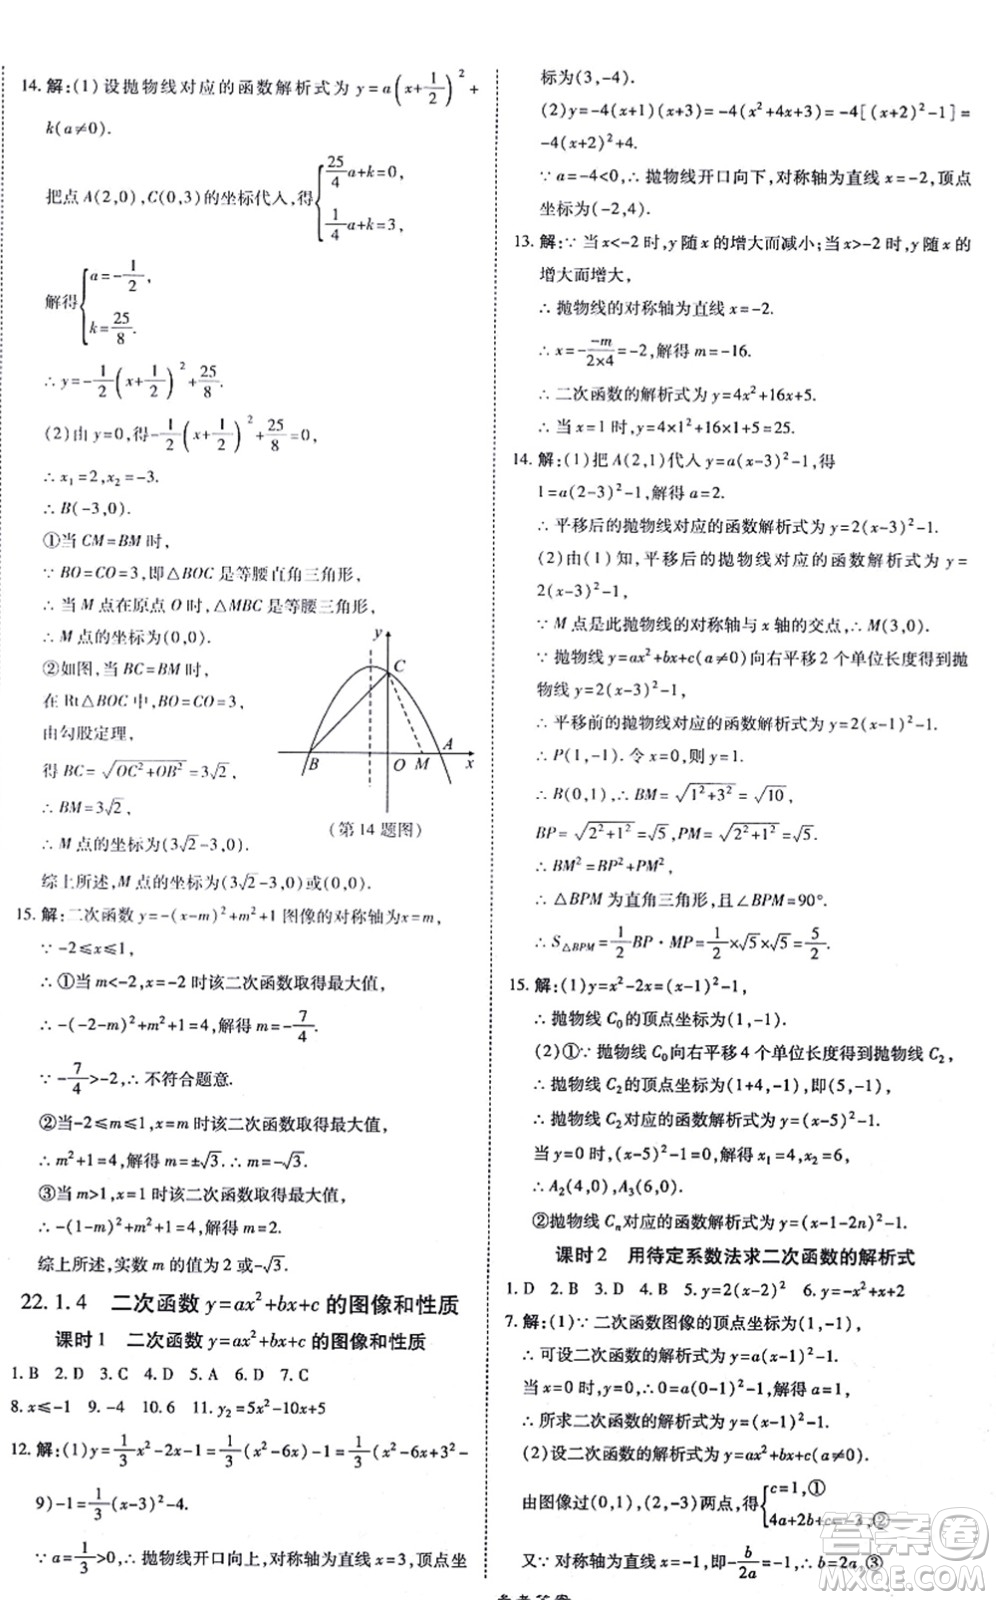 14. 解:(1)设抛物线对应的函数解析式为 y=a(x+1/2)²+
k(a≠0).
把点 A(2,0),C(0,3)的坐标代入,得{25/4a+k=0, 1/4a+k=3.
解得{a=-1/2, k=25/8.
∴ y=-1/2(x+1/2)²+25/8.
(2)由 y=0,得-1/2(x+1/2)²+25/8=0,
∴ x₁=2,x₂=-3.
∴ B(-3,0).
①当 CM=BM 时,
∵ BO=CO=3,即△BOC 是等腰直角三角形,
∴ 当 M 点在原点 O 时,△MBC 是等腰三角形,
∴ M 点的坐标为(0,0).
②如图,当 BC=BM 时,
在 Rt△BOC 中,BO=CO=3,
由勾股定理,
得 BC=√(OC²+OB²)=3√2,
∴ BM=3√2,
∴ M 点的坐标为(3√2-3,0).
y
C
B
O
M
A
x
(第 14 题图)
综上所述,M 点的坐标为(3√2-3,0)或(0,0).
15. 解:二次函数 y=-(x-m)²+m²+1 图像的对称轴为x=m,
∵ -2≤x≤1,
∴ ①当 m<-2,x=-2 时该二次函数取得最大值,
∴ -(-2-m)²+m²+1=4,解得 m=-7/4.
∵ -7/4>-2,∴ 不符合题意.
②当-2≤m≤1,x=m 时该二次函数取得最大值,
∴ m²+1=4,解得 m=±√3.∴ m=-√3.
③当 m>1,x=1 时该二次函数取得最大值,
∴ -(1-m)²+m²+1=4,解得 m=2.
综上所述,实数 m 的值为 2 或-√3.
22.1.4 二次函数 y=ax²+bx+c 的图像和性质
课时1 二次函数 y=ax²+bx+c 的图像和性质
1. B 2. D 3. D 4. C 5. A 6. D 7. C
8. x≤-1 9. -4 10. 6 11. y₂=5x²-10x+5
12. 解:(1)y=1/3x²-2x-1=1/3(x²-6x)-1=1/3(x²-6x+3²-
9)-1=1/3(x-3)²-4.
∵ a=1/3>0,∴ 抛物线开口向上,对称轴为直线 x=3,顶点坐
标为(3,-4).
(2)y=-4(x+1)(x+3)=-4(x²+4x+3)=-4[(x+2)²-1]=
-4(x+2)²+4.
∵ a=-4<0,∴ 抛物线开口向下,对称轴为直线 x=-2,顶点
坐标为(-2,4).
13. 解:∵ 当 x<-2 时,y 随 x 的增大而减小;当 x>-2 时,y 随 x 的
增大而增大,
∴ 抛物线的对称轴为直线 x=-2.
∴ x=-(-m)/(2×4),解得 m=-16.
∴ 二次函数的解析式为 y=4x²+16x+5.
∴ 当 x=1 时,y=4×1²+16×1+5=25.
14. 解:(1)把 A(2,1)代入 y=a(x-3)²-1,得
1=a(2-3)²-1,解得 a=2.
∴ 平移后的抛物线对应的函数解析式为 y=2(x-3)²-1.
(2)由(1)知,平移后的抛物线对应的函数解析式为 y=
2(x-3)²-1,
∵ M 点是此抛物线的对称轴与 x 轴的交点,∴ M(3,0).
∵ 抛物线 y=ax²+bx+c(a≠0)向右平移 2 个单位长度得到抛
物线 y=2(x-3)²-1,
∴ 平移前的抛物线对应的函数解析式为 y=2(x-1)²-1.
∴ P(1,-1). 令 x=0,则 y=1.
∴ B(0,1),∴ BM=√(1²+3²)=√10,
BP=√(2²+1²)=√5,PM=√(2²+1²)=√5.
∴ BM²=BP²+PM².
∴ △BPM 为直角三角形,且∠BPM=90°.
∴ S△BPM=1/2BP·MP=1/2×√5×√5=5/2.
15. 解:(1)y=x²-2x=(x-1)²-1,
∴ 抛物线 C₀的顶点坐标为(1,-1).
(2)①∵ 抛物线 C₀向右平移 4 个单位长度得到抛物线 C₂,
∴ 抛物线 C₂的顶点坐标为(1+4,-1),即(5,-1).
∴ 抛物线 C₂对应的函数解析式为 y=(x-5)²-1.
当 y=0 时,(x-5)²-1=0,解得 x₁=4,x₂=6,
∴ A₂(4,0),A₃(6,0).
②抛物线 Cₙ对应的函数解析式为 y=(x-1-2n)²-1.
课时2 用待定系数法求二次函数的解析式
1. D 2. B 3. D 4. D 5. y=2(x-2)² 6. y=-x²+x+2
7. 解:(1)∵ 二次函数图像的顶点坐标为(1,-1),
∴ 可设二次函数的解析式为 y=a(x-1)²-1.
当 x=0 时,y=0,∴ 0=a(0-1)²-1,解得 a=1,
∴ 所求二次函数的解析式为 y=(x-1)²-1.
(2)设二次函数的解析式为 y=ax²+bx+c(a≠0).
由图像过(0,1),(2,-3)两点,得{c=1,① 4a+2b+c=-3,②
又∵ 对称轴为直线 x=-1,即-b/2a=-1,∴ b=2a,③
参考答案
答案圈
MXQE.COM